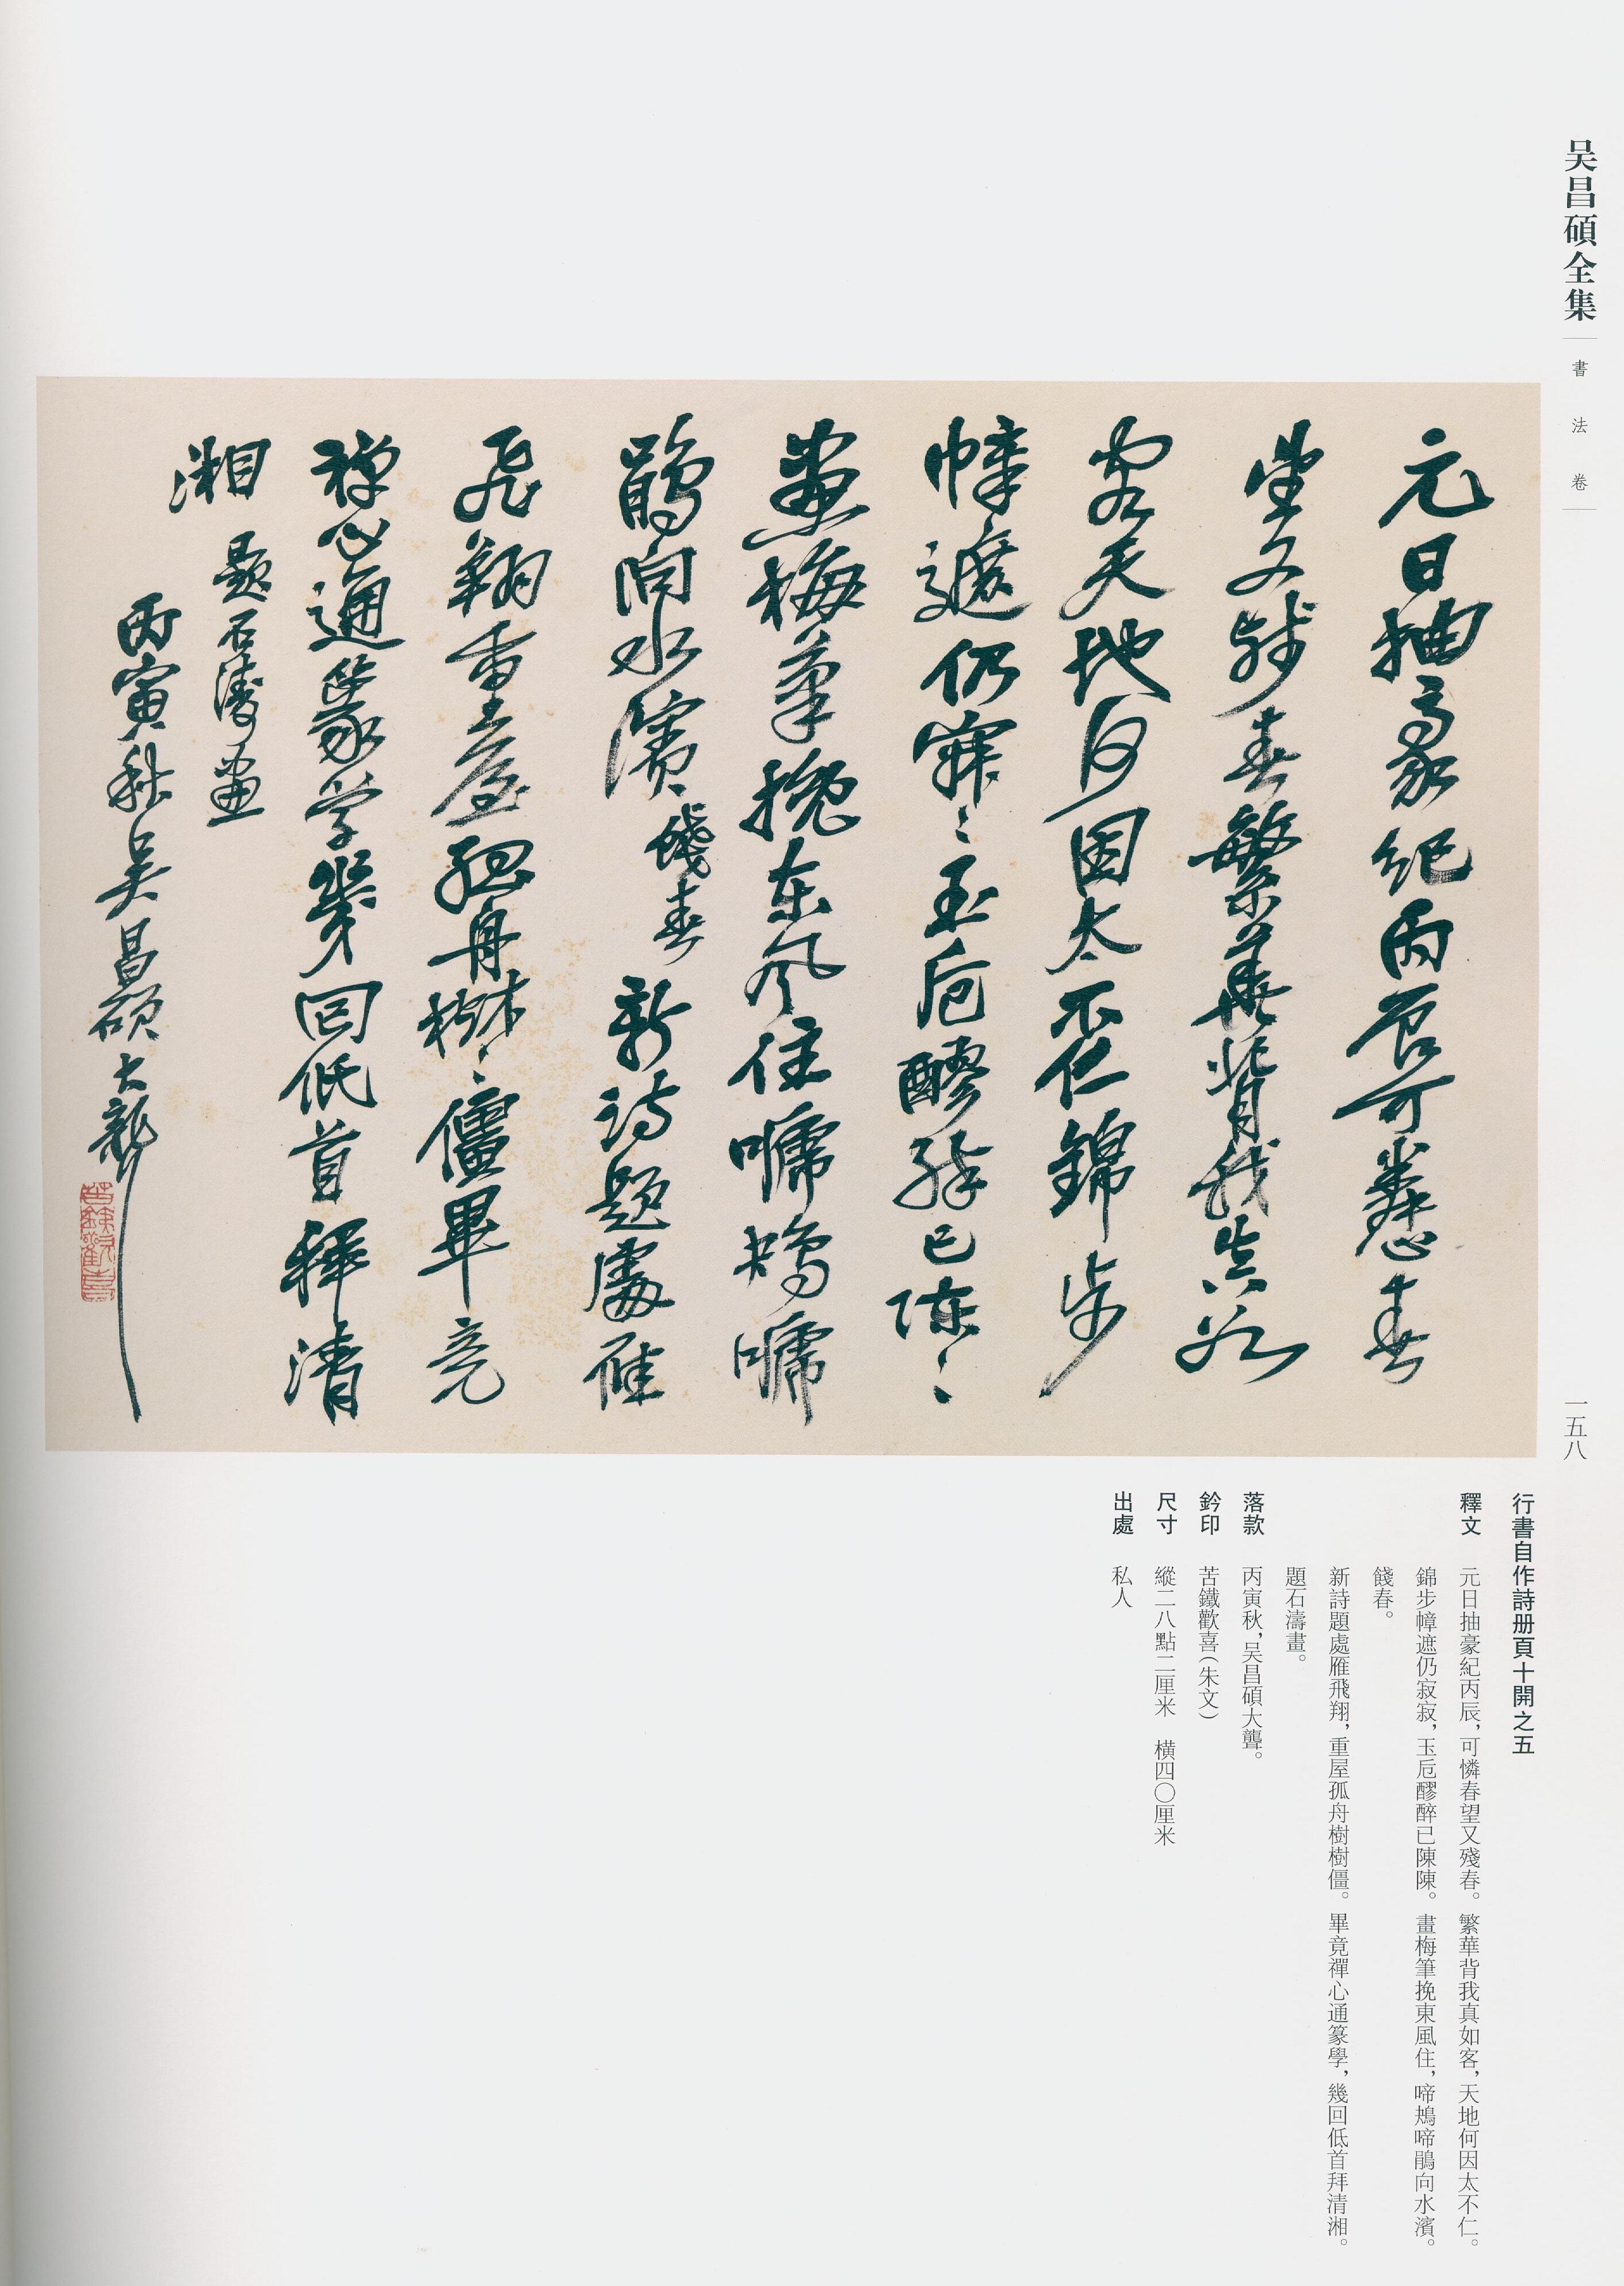 吴昌碩全集
書法卷
一五八
元日抽豪紀丙辰可憐春
望又殘春繁華背我真如
客天地何因太不仁錦步
幛遮仍寂〻玉卮醪醉已陳〻
畫梅筆挽東風住嗁鴂嗁
鵑向水濱 餞春 新詩題處雁
飛翔重屋孤舟樹〻僵畢竟
禪心通篆學幾回低首拜清
湘 題石濤畫
丙寅秋吳昌碩大聾
苦鐵歡喜
行書自作詩册頁十開之五
釋文 元日抽豪紀丙辰，可憐春望又殘春。繁華背我真如客，天地何因太不仁。
錦步幛遮仍寂寂，玉卮醪醉已陳陳。畫梅筆挽東風住，啼鴂啼鵑向水濱。
餞春。
新詩題處雁飛翔，重屋孤舟樹樹僵。畢竟禪心通篆學，幾回低首拜清湘。
題石濤畫。
落款 丙寅秋，吴昌碩大聾。
鈐印 苦鐵歡喜（朱文）
尺寸 縱二八點二厘米 横四〇厘米
出處 私人